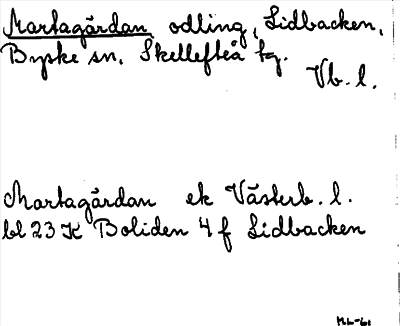 Martagårdan odling, Lidbacken,
Byske sn, Skellefteå tg.
Vb. l.
Martagårdan ek Västerb. l.
bl 23 K Boliden 4 f Lidbacken